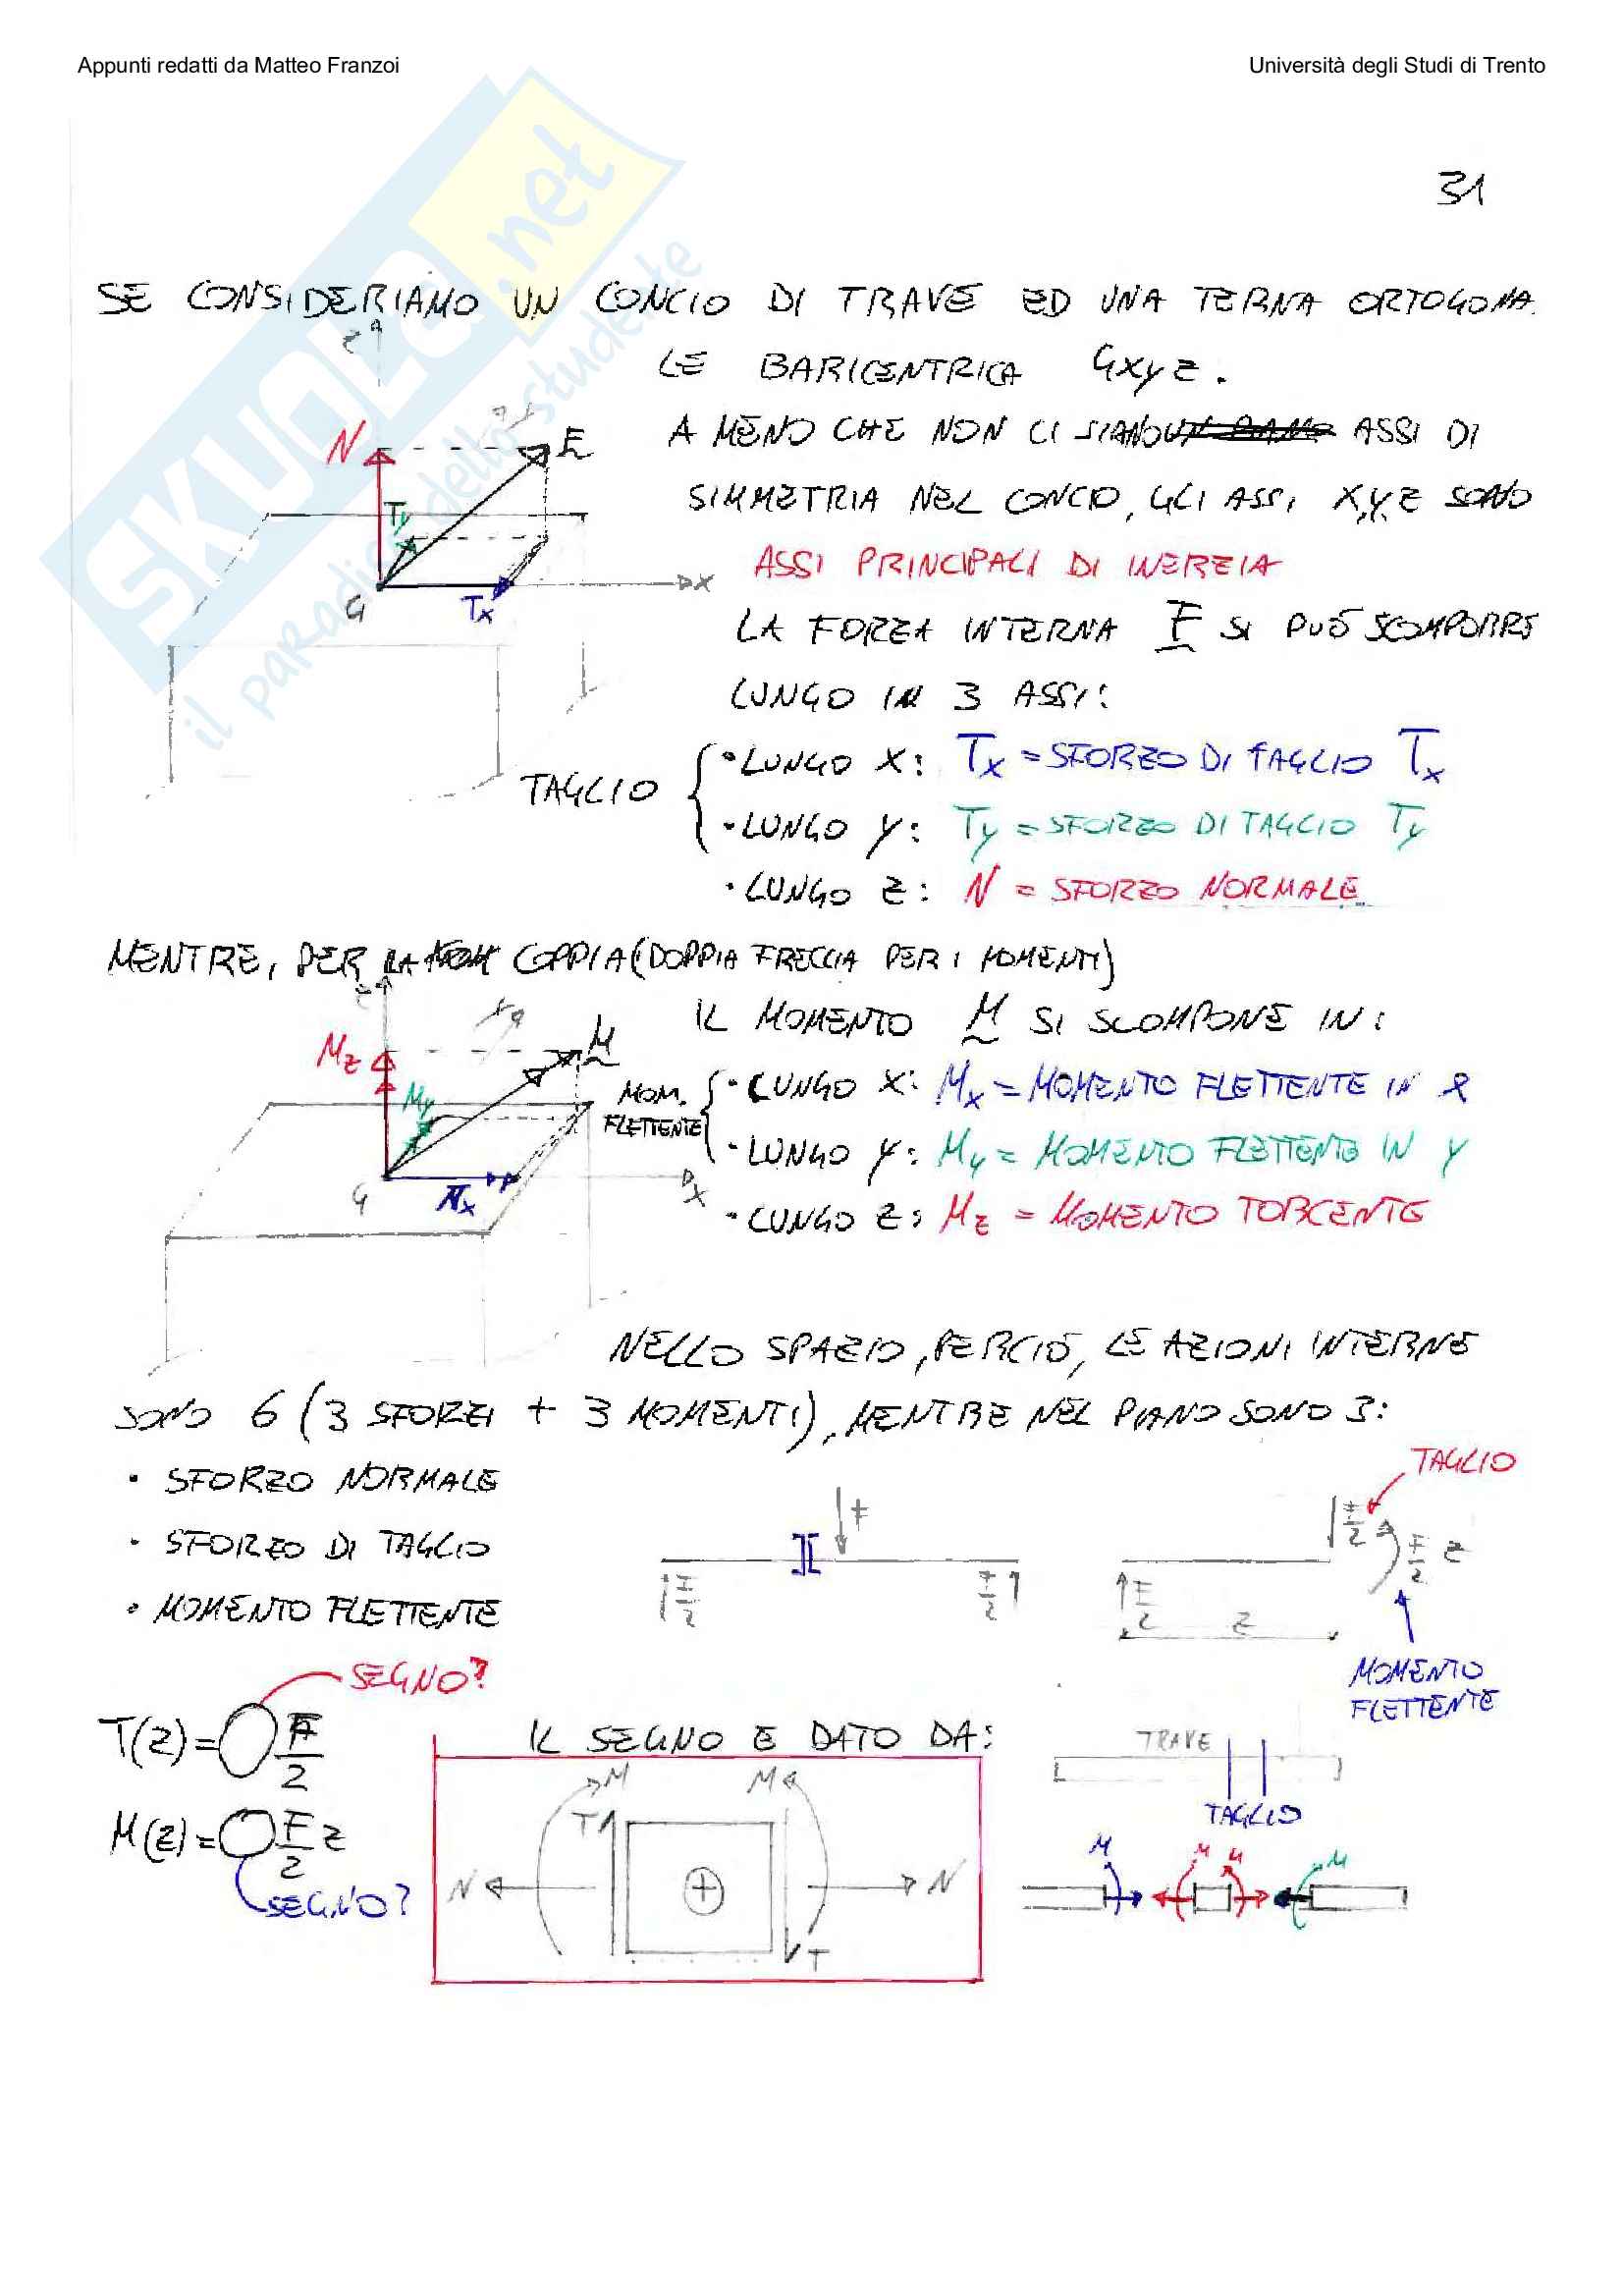 Appunti redatti da Matteo Franzoi
Università degli Studi di Trento
31
SE CONSIDERIAMO UN CONCIO DI TRAVE ED UNA TERNA ORTOGONA
LE BARICENTRICA Gxyz.
A MENO CHE NON CI SIANO ASSI DI
SIMMETRIA NEL CONCIO, GLI ASSI X,Y,Z SONO
ASSI PRINCIPALI DI INERZIA
LA FORZA INTERNA F SI PUÒ SCOMPORRE
LUNGO IN 3 ASSI:
TAGLIO
• LUNGO X: Tx = SFORZO DI TAGLIO Tx
• LUNGO Y: Ty = SFORZO DI TAGLIO Ty
• LUNGO Z: N = SFORZO NORMALE
z
y
N
F
Ty
G
Tx
x
MENTRE, PER LA COPPIA (DOPPIA FRECCIA PER I MOMENTI)
IL MOMENTO M SI SCOMPONE IN:
MOM. FLETTENTE
• LUNGO X: Mx = MOMENTO FLETTENTE IN X
• LUNGO Y: My = MOMENTO FLETTENTE IN Y
• LUNGO Z: Mz = MOMENTO TORCENTE
z
y
Mz
M
My
G
Mx
x
NELLO SPAZIO, PERCIÒ, LE AZIONI INTERNE
SONO 6 (3 SFORZI + 3 MOMENTI), MENTRE NEL PIANO SONO 3:
• SFORZO NORMALE
• SFORZO DI TAGLIO
• MOMENTO FLETTENTE
F
F/2
F/2
TAGLIO
F/2
F/2 z
F/2
z
MOMENTO
FLETTENTE
SEGNO?
T(z) = F/2
M(z) = F/2 z
SEGNO?
IL SEGNO E DATO DA:
M
M
T
N
+
N
T
TRAVE
TAGLIO
M
M
M
M
SKUOLA.net
il paradiso dello studente